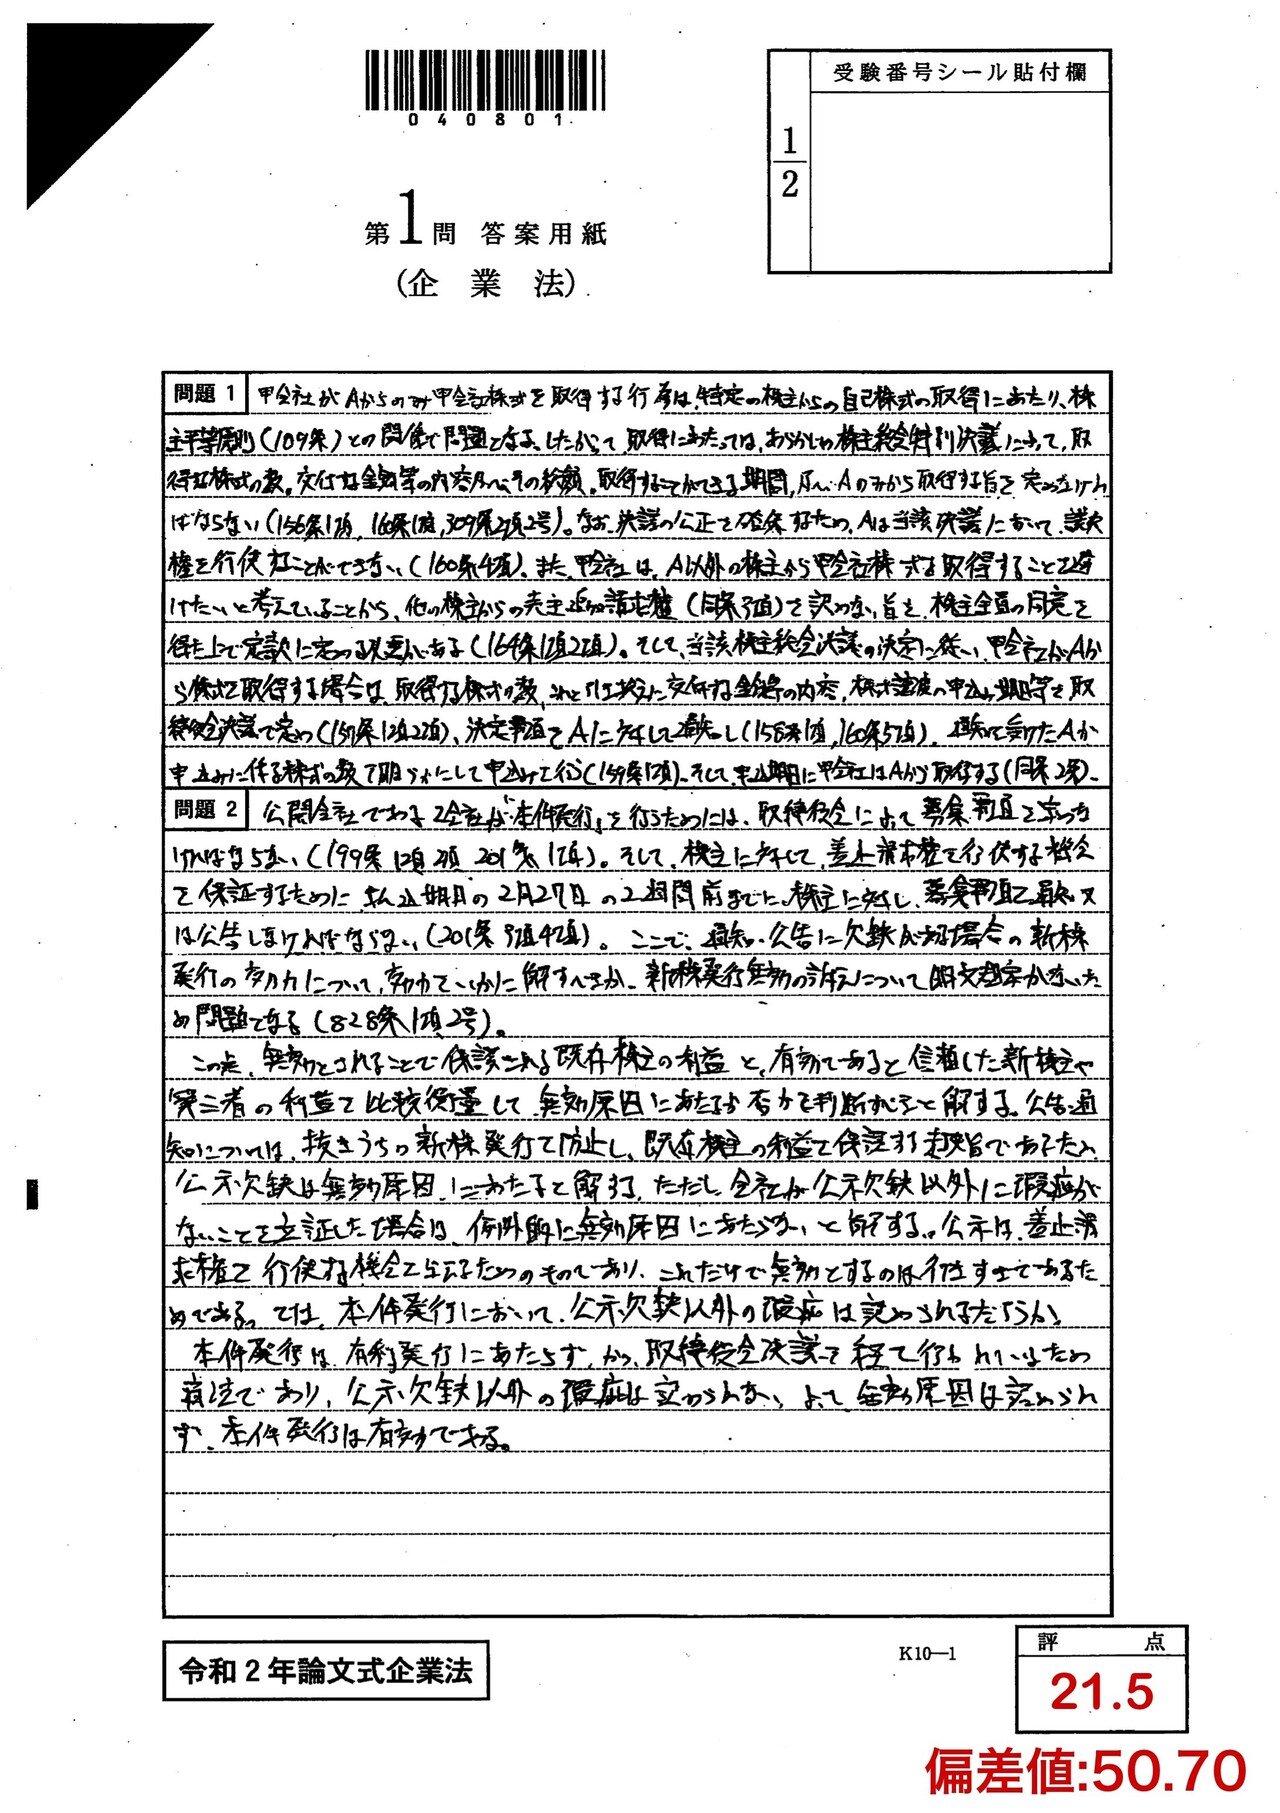 040801
受験番号シール貼付欄
1
2
第1問 答案用紙
(企 業 法)
問題 1 甲会社がAからのみ甲会社株式を取得する行為は、特定の株主からの自己株式の取得にあたり、株
主平等原則(109条)との関係で問題となる。したがって、取得にあたっては、あらかじめ株主総会特別決議によって、取
得する株式の数、交付する金銭等の内容及びその総額、取得することができる期間、及びAのみから取得する旨を定めなけれ
ばならない(156条1項,160条1項,309条2項2号)。なお、決議の公正を確保するため、Aは当該決議において、議決
権を行使することができない(160条4項)。また、甲会社は、A以外の株主から甲会社株式を取得することを避
けたいと考えていることから、他の株主からの売主追加請求権(同条3項)を認めない旨を、株主全員の同意を
得た上で定款に定める必要がある(164条1項2項)。そして、当該株主総会決議の決定に従い、甲会社がAか
ら株式を取得する場合は、取得する株式の数、これと引き換えに交付する金銭等の内容、株式譲渡の申込み期日等を取
締役会決議で定め(157条1項2項)、決定事項をAに対して通知し(158条1項,160条5項)、通知を受けたAが
申込みに係る株式の数を明らかにして申込みを行う(159条1項)。そして、申込期日に甲会社はAから取得する(同条2項)。
問題 2 公開会社である乙会社が「本件発行」を行うためには、取締役会によって募集事項を定めな
ければならない(199条1項2項,201条1項)。そして、株主に対して、差止請求権を行使する機会
を保証するために払込期日の2月27日の2週間前までに、株主に対し、募集事項を通知又
は公告しなければならない(201条3項4項)。ここで、通知・公告に欠缺がある場合の新株
発行の効力について、効力をいかに解すべきか、新株発行無効の訴えについて明文規定がないた
め問題となる(828条1項2号)。
この点、無効とされることで保護される既存株主の利益と、有効であると信頼した新株主や
第三者の利益を比較衡量して、無効原因にあたるか否かを判断すべきと解する。公告・通
知については、抜きうちの新株発行を防止し、既存株主の利益を保護する趣旨であるため、
公示欠缺は無効原因にあたると解する。ただし、会社が公示欠缺以外に瑕疵が
ないことを立証した場合は、例外的に無効原因にあたらないと解する。公示は、差止請
求権を行使する機会を与えるためのものであり、これだけで無効とするのは行きすぎであるた
めである。では、本件発行において、公示欠缺以外の瑕疵は認められるだろうか。
本件発行は、有利発行にあたらず、かつ、取締役会決議を経て行われているため
適法であり、公示欠缺以外の瑕疵は認められない。よって、無効原因は認められ
ず、本件発行は有効である。
令和2年論文式企業法
K10—1
評 点
21.5
偏差値:50.70